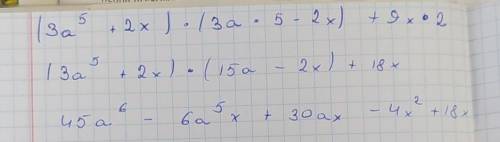 (3a⁵ + 2x) • (3a • 5 - 2x) + 9x • 2
(3a⁵ + 2x) • (15a - 2x) + 18x
45a⁶ - 6a⁵x + 30ax - 4x² + 18x